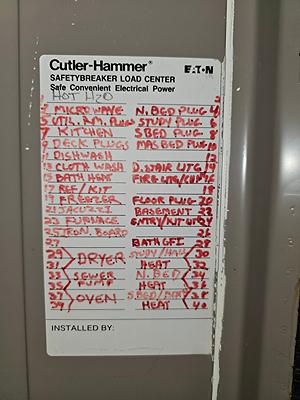 Cutler-Hammer® EATON
SAFETYBREAKER LOAD CENTER
Safe Convenient Electrical Power
HOT H2O
3 MICROWAVE N. BED PLUG 4
5 UTIL. RM. PLUGS STUDY PLUG 6
7 KITCHEN S BED PLUG 8
9 DECK PLUGS MAS BED PLUG 10
11 DISHWASH 12
13 CLOTH WASH D. STAIR LITG 14
15 BATH HEAT FIRE LITE/
17 REF/KIT 18
19 FREEZER FLOOR PLUG 20
21 JACUZZI BASEMENT 22
23 FURNACE ENTRY/KIT 24
25 IRON. BOARD 26
27 BATH GFI 28
29 DRYER STUDY/HALL 30
31 HEAT 32
33 SEWER PUMP N. BED 34
35 HEAT 36
37 OVEN S BED/BATH 38
39 HEAT 40
INSTALLED BY: